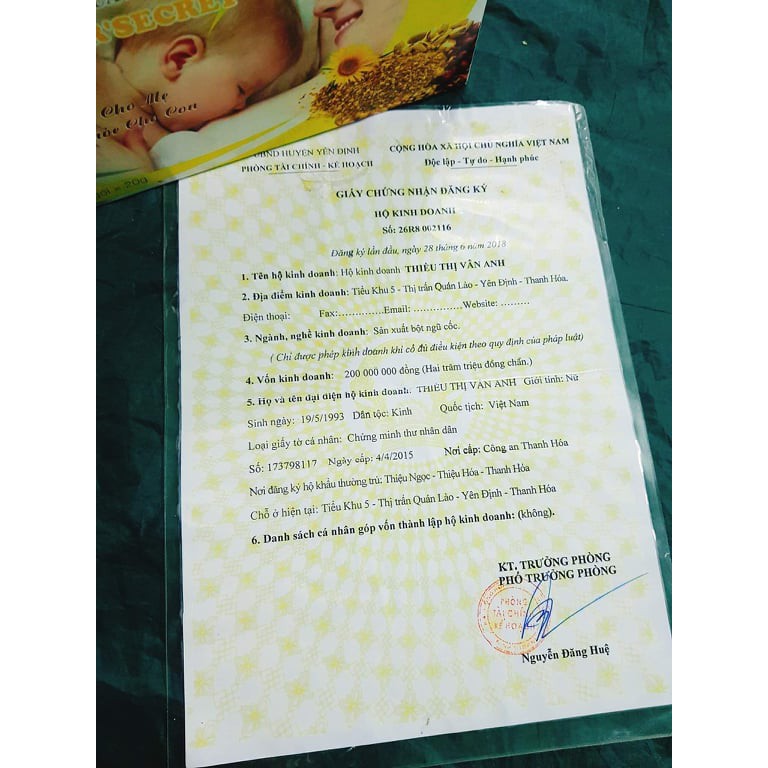 A'SECRET
Cho Mẹ
Cho Con
= 20G
UBND HUYỆN YÊN ĐỊNH
PHÒNG TÀI CHÍNH - KẾ HOẠCH
CỘNG HÒA XÃ HỘI CHỦ NGHĨA VIỆT NAM
Độc lập - Tự do - Hạnh phúc
GIẤY CHỨNG NHẬN ĐĂNG KÝ
HỘ KINH DOANH
Số: 26R8 002116
Đăng ký lần đầu, ngày 28 tháng 6 năm 2018
1. Tên hộ kinh doanh: Hộ kinh doanh THIỀU THỊ VÂN ANH
2. Địa điểm kinh doanh: Tiểu Khu 5 - Thị trấn Quán Lào - Yên Định - Thanh Hóa.
Điện thoại: Fax:..............Email: ...............Website: .........
3. Ngành, nghề kinh doanh: Sản xuất bột ngũ cốc.
( Chỉ được phép kinh doanh khi có đủ điều kiện theo quy định của pháp luật)
4. Vốn kinh doanh: 200 000 000 đồng (Hai trăm triệu đồng chẵn.)
5. Họ và tên đại diện hộ kinh doanh: THIỀU THỊ VÂN ANH Giới tính: Nữ
Sinh ngày: 19/5/1993 Dân tộc: Kinh Quốc tịch: Việt Nam
Loại giấy tờ cá nhân: Chứng minh thư nhân dân
Số: 173798117 Ngày cấp: 4/4/2015 Nơi cấp: Công an Thanh Hóa
Nơi đăng ký hộ khẩu thường trú: Thiệu Ngọc - Thiệu Hóa - Thanh Hóa
Chỗ ở hiện tại: Tiểu Khu 5 - Thị trấn Quán Lào - Yên Định - Thanh Hóa
6. Danh sách cá nhân góp vốn thành lập hộ kinh doanh: (không).
KT. TRƯỞNG PHÒNG
PHÓ TRƯỞNG PHÒNG
PHÒNG
TÀI CHÍNH
KẾ HOẠCH
Nguyễn Đăng Huệ